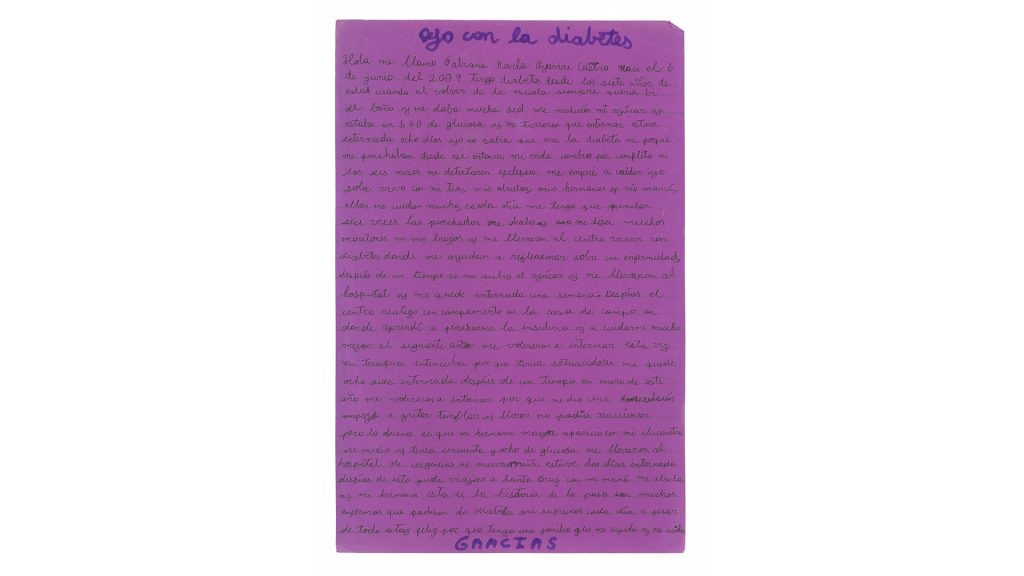 ojo con la diabetes
Hola me llamo Fabiana Karla Ayarviri Castro naci el 6
de junio del 2009 tengo diabetes desde los siete años de
edad cuando al volver de la escuela siempre queria ir
al baño y me daba mucha sed me midieron mi azúcar y
estaba en 560 de glucosa y me tuvieron que internar estuve
internada ocho días yo no sabia que era la diabetes ni porque
me pinchaban desde ese entonces mi vida cambio por completo a
los seis meses me detectaron epilepsia me empece a cuidar yo
sola vivo con mi tia, mis abuelos, mis hermanos y mi mamá,
ellos me cuidan mucho, cada día me tengo que pinchar
seis veces las pinchadas me duelen y eso me deja muchos
moretones en mis brazos y me llevaron al centro vivir con
diabetes donde me ayudan a reflexionar sobre mi enfermedad,
después de un tiempo se me subio el azúcar y me llevaron al
hospital y me quede internada una semana. Después el
centro realizo un campamento en la casa de campo en
donde aprendí a pincharme la insulina y a cuidarme mucho
mejor al siguiente año me volvieron a internar esta vez
en terapia intenciva por que tenia me quede
ocho dias internada después de un tiempo en enero de este
año me volvieron a internar por que me dio una
empeze a gritar temblar y llorar no podia reaccionar
pero lo bueno es que mi hermana mayor aparecio con mi
me midio y tenia cincuenta y ocho de glucosa me llevaron al
hospital de nuevamente estuve dos días internada
después de esto pude viajar a Santa Cruz con mi mamá mi abuela
y mi hermana esta es la historia de lo pasa con muchos
enfermos que padecen de diabetes que sufrimos cada día a pesar
de todo estoy feliz por que tengo una familia que me ayuda y me cuida
GRACIAS